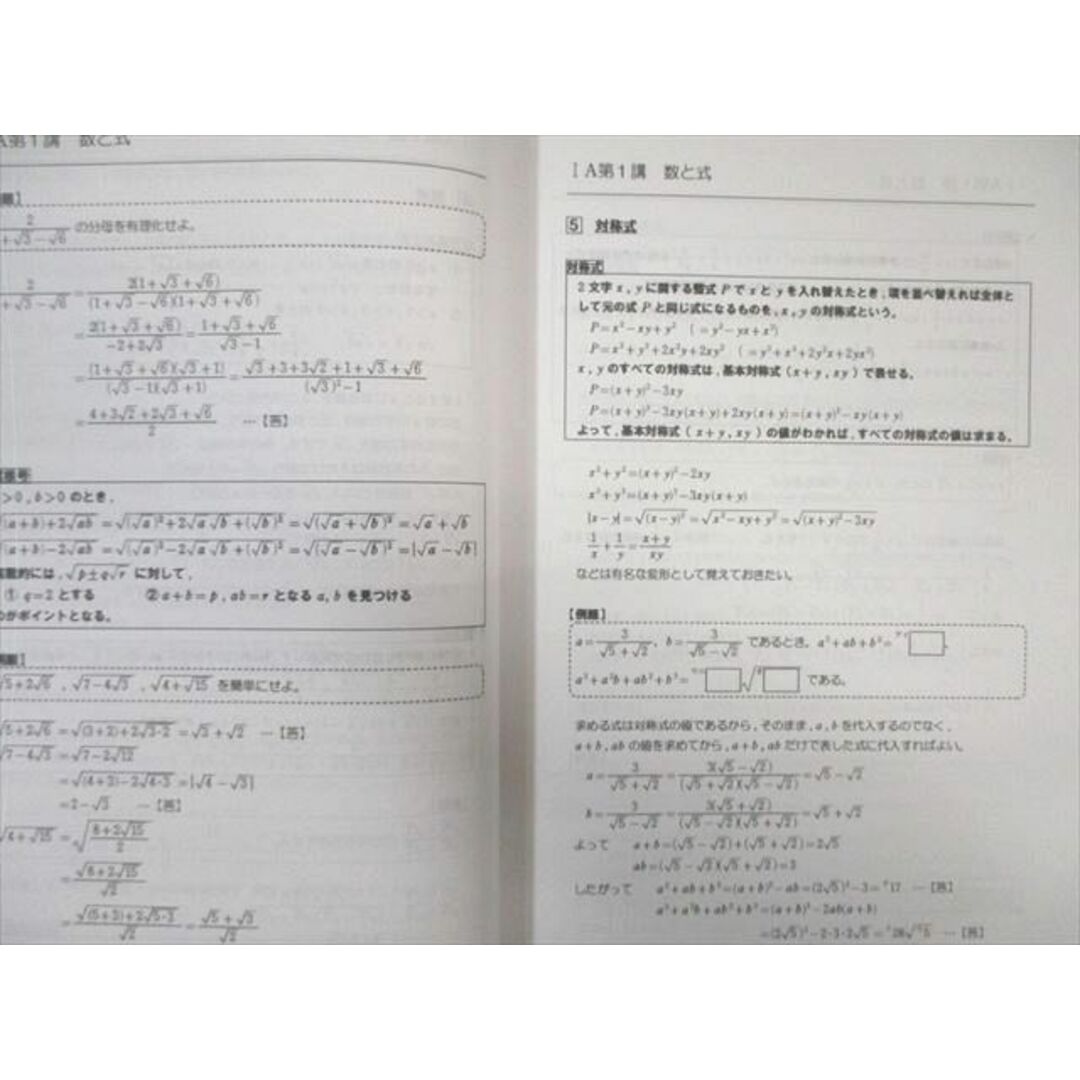 A第1講 数と式
の分母を有理化せよ。
= 2(1+√3+√6) / (1+√3-√6)(1+√3+√6)
= 2(1+√3+√6) / -2+2√3 = 1+√3+√6 / √3-1
= (1+√3+√6)(√3+1) / (√3-1)(√3+1) = √3+3+3√2+1+√3+√6 / (√3)²-1
= 4+3√2+2√3+√6 / 2 …【答】
>0, b>0 のとき,
(a+b)+2√ab = √(√a)²+2√a√b+(√b)² = √(√a+√b)² = √a+√b
(a+b)-2√ab = √(√a)²-2√a√b+(√b)² = √(√a-√b)² = |√a-√b|
√p±q√r に対して,
① q=2 とする ② a+b=p, ab=r となる a, b を見つける
がポイントとなる。
√5+2√6, √7-4√3, √4+√15 を簡単にせよ。
√5+2√6 = √(3+2)+2√3·2 = √3+√2 …【答】
√7-4√3 = √7-2√12
= √(4+3)-2√4·3 = |√4-√3|
= 2-√3 …【答】
√4+√15 = √8+2√15 / 2
= √8+2√15 / √2
= √(5+3)+2√5·3 / √2 = √5+√3 / √2
ⅠA第1講 数と式
5 対称式
対称式
2文字 x, y に関する整式 P で x と y を入れ替えたとき, 項を並べ替えれば全体と
して元の式 P と同じ式になるものを, x, y の対称式という。
P=x²-xy+y² (=y²-yx+x²)
P=x³+y³+2x²y+2xy² (=y³+x³+2y²x+2yx²)
x, y のすべての対称式は, 基本対称式 (x+y, xy) で表せる。
P=(x+y)²-3xy
P=(x+y)³-3xy(x+y)+2xy(x+y)=(x+y)³-xy(x+y)
よって, 基本対称式 (x+y, xy) の値がわかれば, すべての対称式の値は求まる。
x²+y²=(x+y)²-2xy
x³+y³=(x+y)³-3xy(x+y)
|x-y|=√(x-y)²=√x²-xy+y²=√(x+y)²-3xy
1/x + 1/y = x+y / xy
などは有名な変形として覚えておきたい。
【例題】
a= 3 / √5+√2, b= 3 / √5-√2 であるとき, a²+ab+b²= □,
a³+a²b+ab²+b³= □√□ である。
求める式は対称式の値であるから, そのまま, a, b を代入するのでなく,
a+b, ab の値を求めてから, a+b, ab だけで表した式に代入すればよい。
a= 3 / √5+√2 = 3(√5-√2) / (√5+√2)(√5-√2) = √5-√2
b= 3 / √5-√2 = 3(√5+√2) / (√5-√2)(√5+√2) = √5+√2
よって a+b=(√5-√2)+(√5+√2)=2√5
ab=(√5-√2)(√5+√2)=3
したがって a²+ab+b²=(a+b)²-ab=(2√5)²-3=17 …【答】
a³+a²b+ab²+b³=(a+b)³-2ab(a+b)
=(2√5)³-2·3·2√5=28√5 …【答】